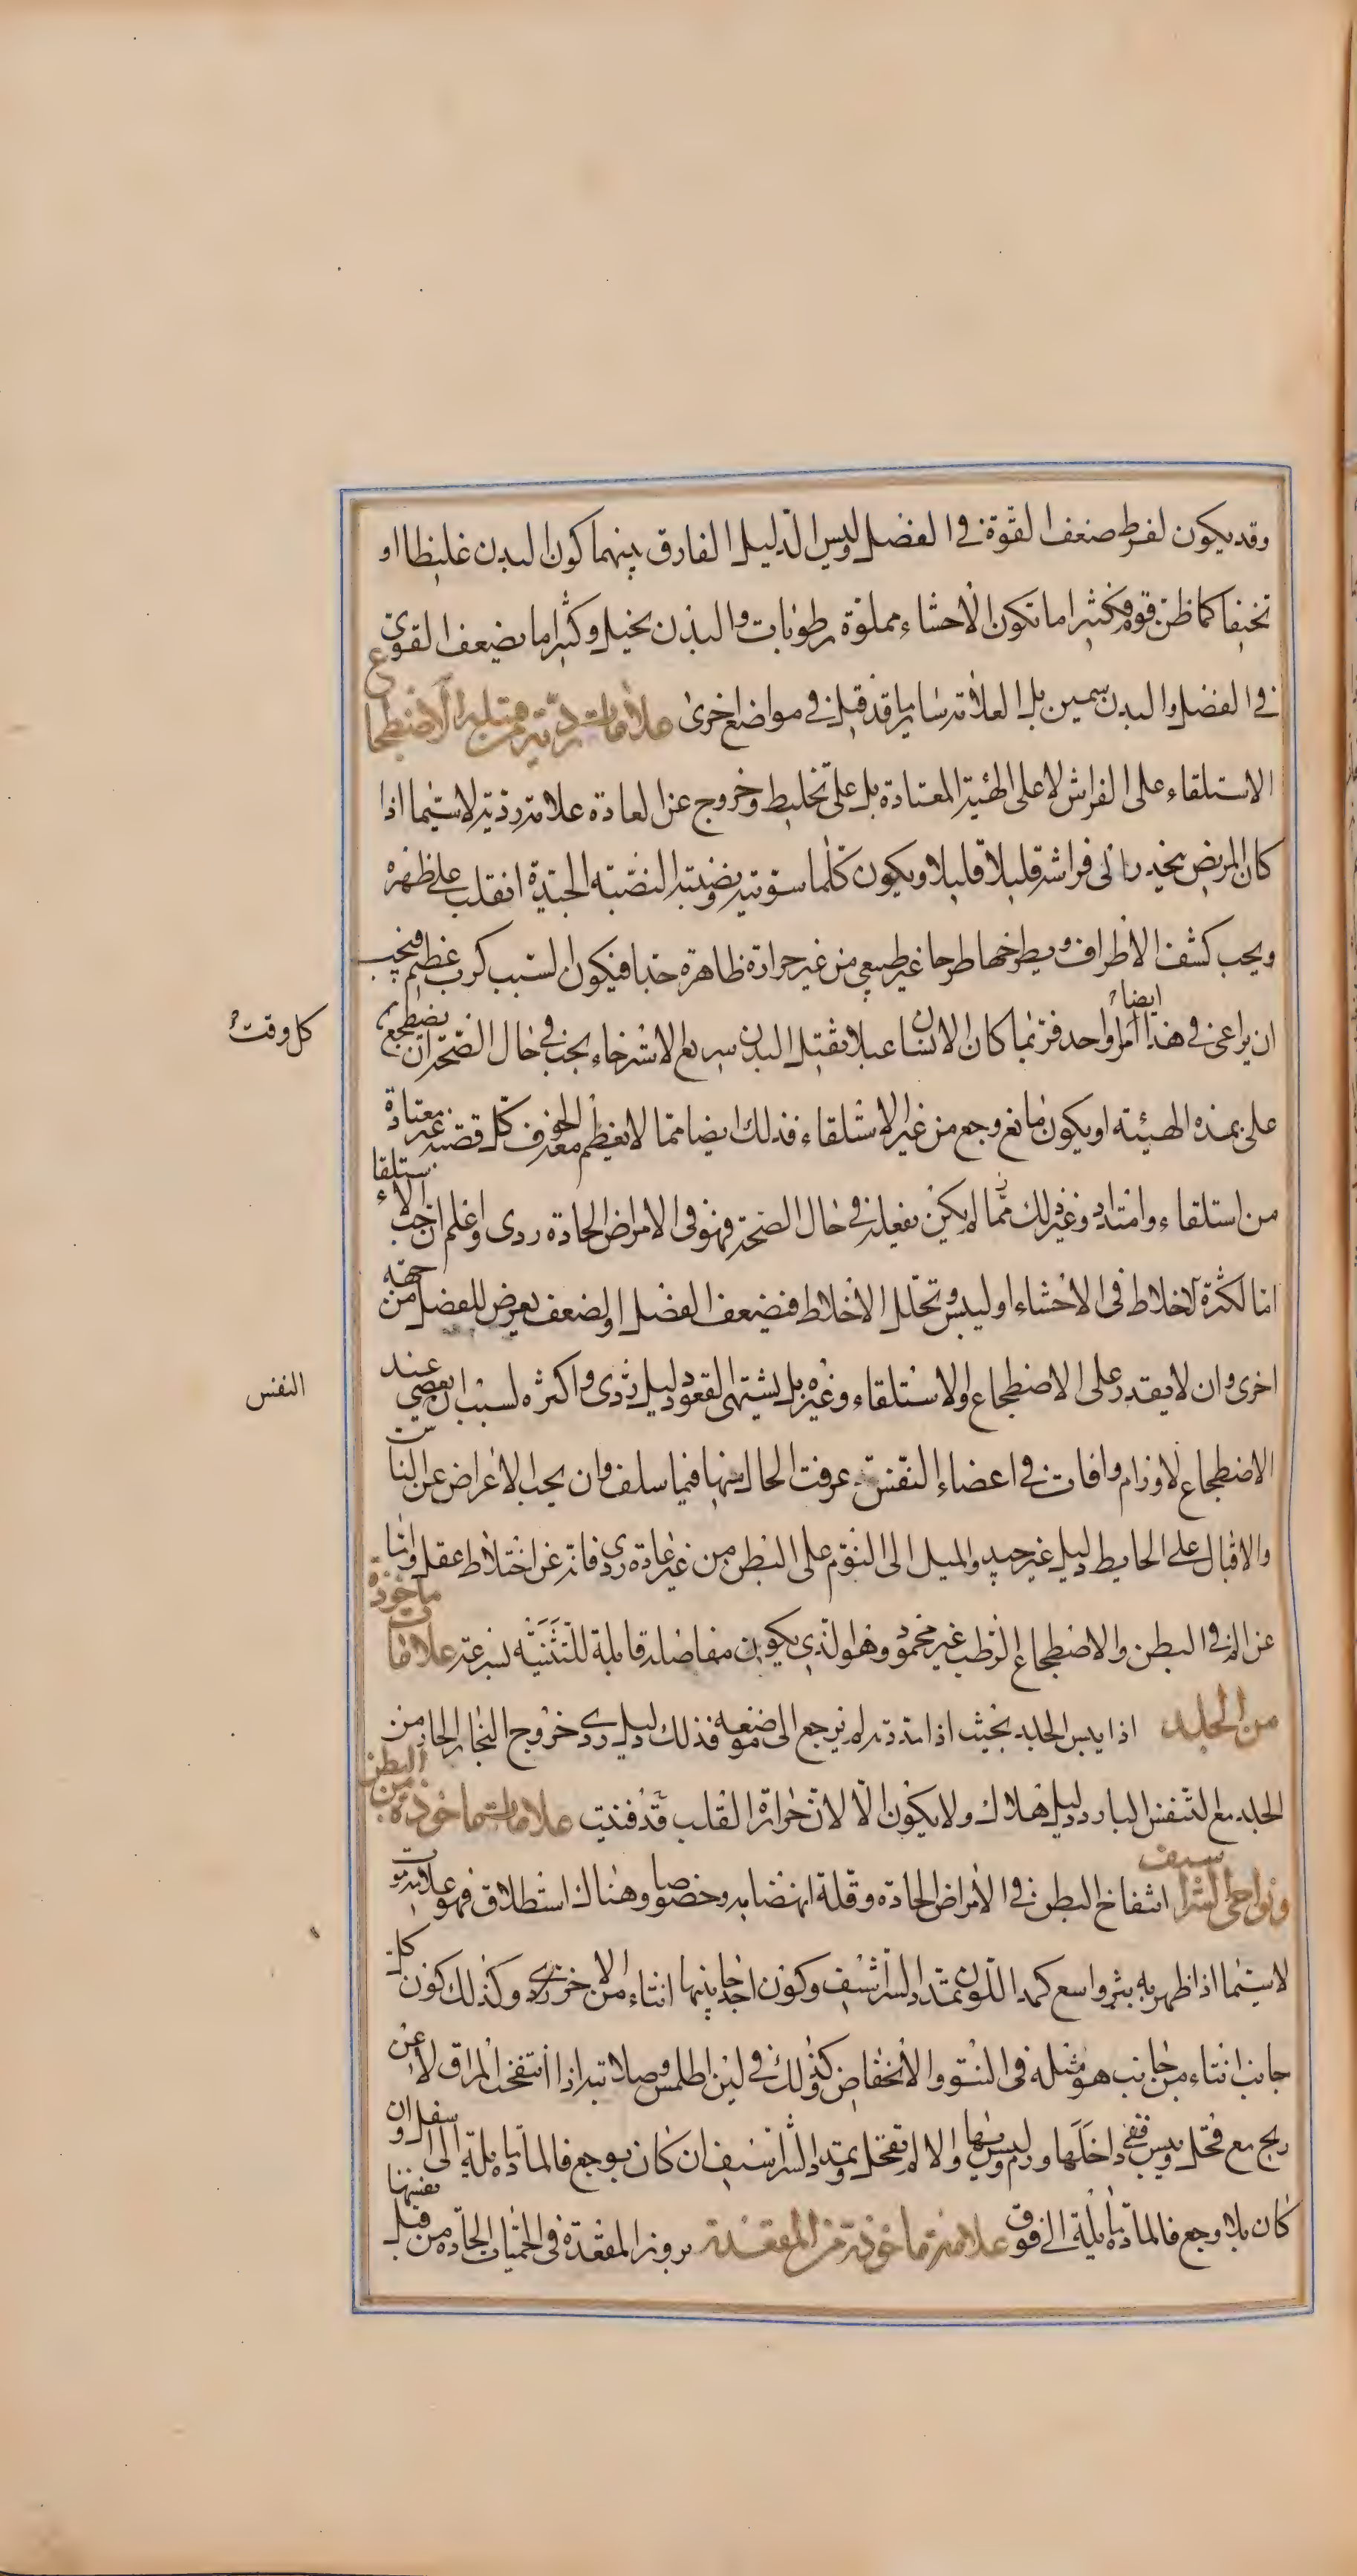 وقد يكون لفرط ضعف القوة في العضل وليس الدليل الفارق بينهما كون البدن غليظا او
نحيفا كما ظن قوم فكثيرا ما تكون الاحشاء مملوة رطوبات والبدن نحيل وكثيرا ما يضعف القوى
في العضل والبدن سمين بل العلامة ساير ما قد قيل في مواضع اخرى علامات ردية من قبل الاضطجاع
الاستلقاء على الفراش لا على الهيئة المعتادة بل على تخليط وخروج عن العادة علامة ردية لا سيما اذا
كان المريض ينحدر الى فراشه قليلا قليلا ويكون كلما سويته ونصبته النصبة الجيدة انقلب على ظهره
ويحب كشف الاطراف ويطرحها طرحا غير طبيعي من غير حرارة ظاهرة جدا فيكون السبب كرب عظيم فيجب
ان يراعى في هذا ايضا امر واحد فربما كان الانسان عبلا ثقيل البدن سريع الاسترخاء يحب في حال الصحة ان يضطجع
كل وقت
على هذه الهيئة او يكون مانع وجع من غير الاستلقاء فذلك ايضا مما لا يعظم معه الخوف كل قصبة غير معتادة
من استلقاء وامتداد وغير ذلك مما لم يكن يفعله في حال الصحة فهو في الامراض الحادة ردى واعلم ان حب الاستلقاء
اما لكثرة الاخلاط في الاحشاء او ليبس وتحلل الاخلاط فضعف العضل او لضعف يعرض للعضل من جهة
اخرى وان لا يقدر على الاضطجاع والاستلقاء وغيره بل يشتهى القعود دليل ردى واكثره لسبب ان يعصي عند
النفس
الاضطجاع لاورام وافات في اعضاء النفس عرفت الحال منها فيما سلف وان يحب الاعراض عن الناس
والاقبال على الحايط دليل غير جيد والميل الى النوم على البطن من غير عادة ردى فانه عن اختلاط عقل واما
عن الم في البطن والاضطجاع الرطب غير محمود وهو الذى يكون مفاصله قابلة للتثنية بسرعة علامات ماخوذة
من الجلد اذا يبس الجلد بحيث اذا مددته لم يرجع الى موضعه فذلك دليل ردى خروج البخار الحار من
الجلد مع التنفس البارد دليل هلاك ولا يكون الا لان حرارة القلب قد فنيت علامات ماخوذة من البطن
ونواحي الشراسيف انتفاخ البطن في الامراض الحادة وقلة انهضامه وخصوصا وهناك استطلاق فهو علامة موت
لا سيما اذا ظهر به بثر واسع كمد اللون تمدد الشراسيف وكون احد جانبيها انتاء من الاخر ردى وكذلك كون كل
جانب انتاء من جانب هو مثله في النتو والانخفاض كذلك في لين الملمس وصلابته اذا انتفخت المراق لا عن
ريح مع قحل ويبس ففي داخلها ورم وليس بها والا لم تقحل وتمدد الشراسيف ان كان بوجع فالمادة مايلة الى اسفل وان
كان بلا وجع فالمادة مايلة الى فوق علامة ماخوذة من المقعدة بروز المقعدة في الحميات الحادة من قبل نفسها